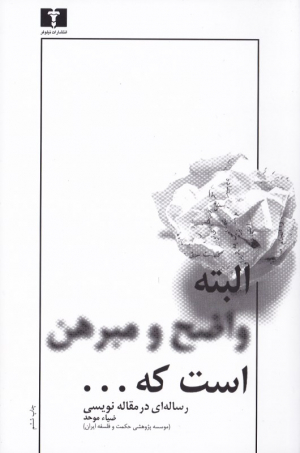 انتشارات نیلوفر
البته
واضح و مبرهن
است که ...
رساله‌ای در مقاله نویسی
ضیاء موحد
(موسسه پژوهشی حکمت و فلسفه ایران)
چاپ ششم